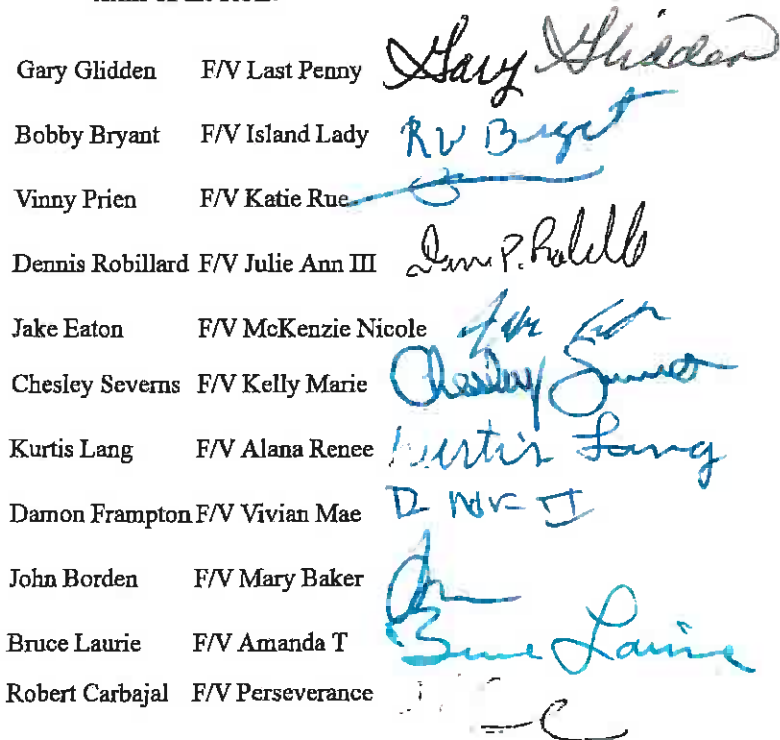 Gary Glidden F/V Last Penny Gary Glidden
Bobby Bryant F/V Island Lady
Vinny Prien F/V Katie Rue
Dennis Robillard F/V Julie Ann III
Jake Eaton F/V McKenzie Nicole
Chesley Severns F/V Kelly Marie Chesley
Kurtis Lang F/V Alana Renee Kurtis Lang
Damon Frampton F/V Vivian Mae
John Borden F/V Mary Baker
Bruce Laurie F/V Amanda T Bruce Laurie
Robert Carbajal F/V Perseverance